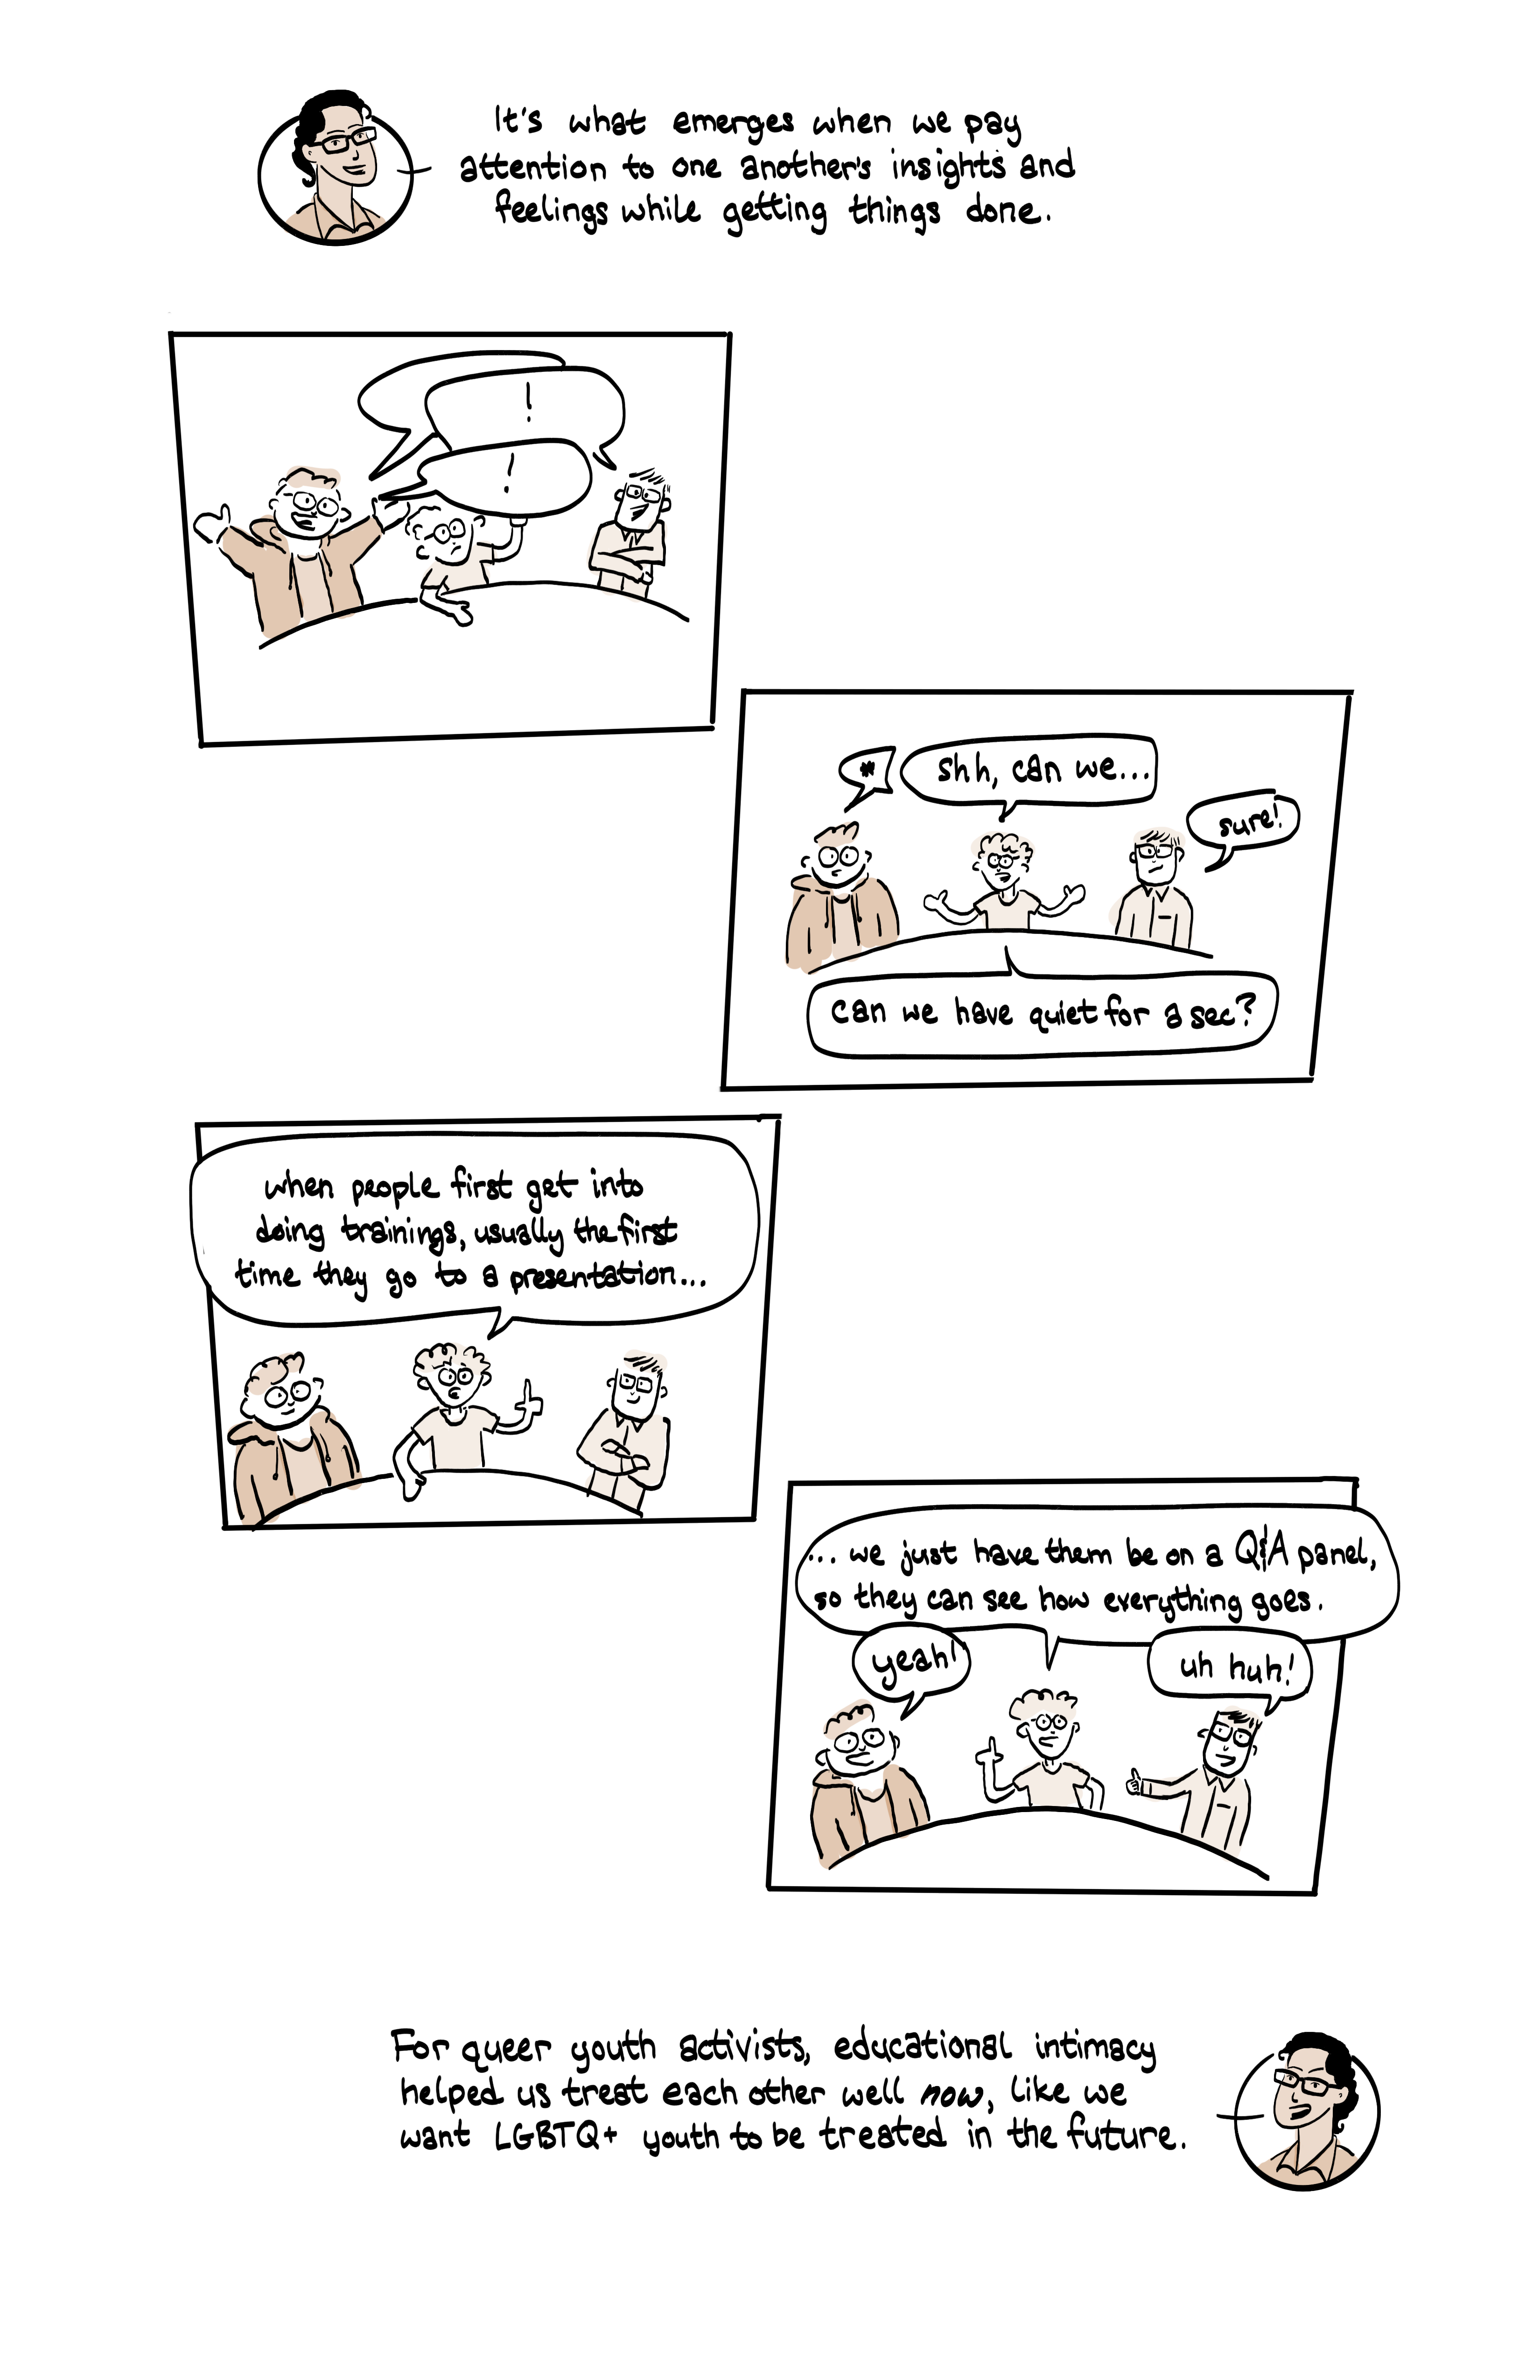 It's what emerges when we pay
attention to one another's insights and
feelings while getting things done.
!
!
*
shh, can we...
sure!
can we have quiet for a sec?
when people first get into
doing trainings, usually the first
time they go to a presentation...
... we just have them be on a Q&A panel,
so they can see how everything goes.
yeah!
uh huh!
For queer youth activists, educational intimacy
helped us treat each other well now, like we
want LGBTQ+ youth to be treated in the future.